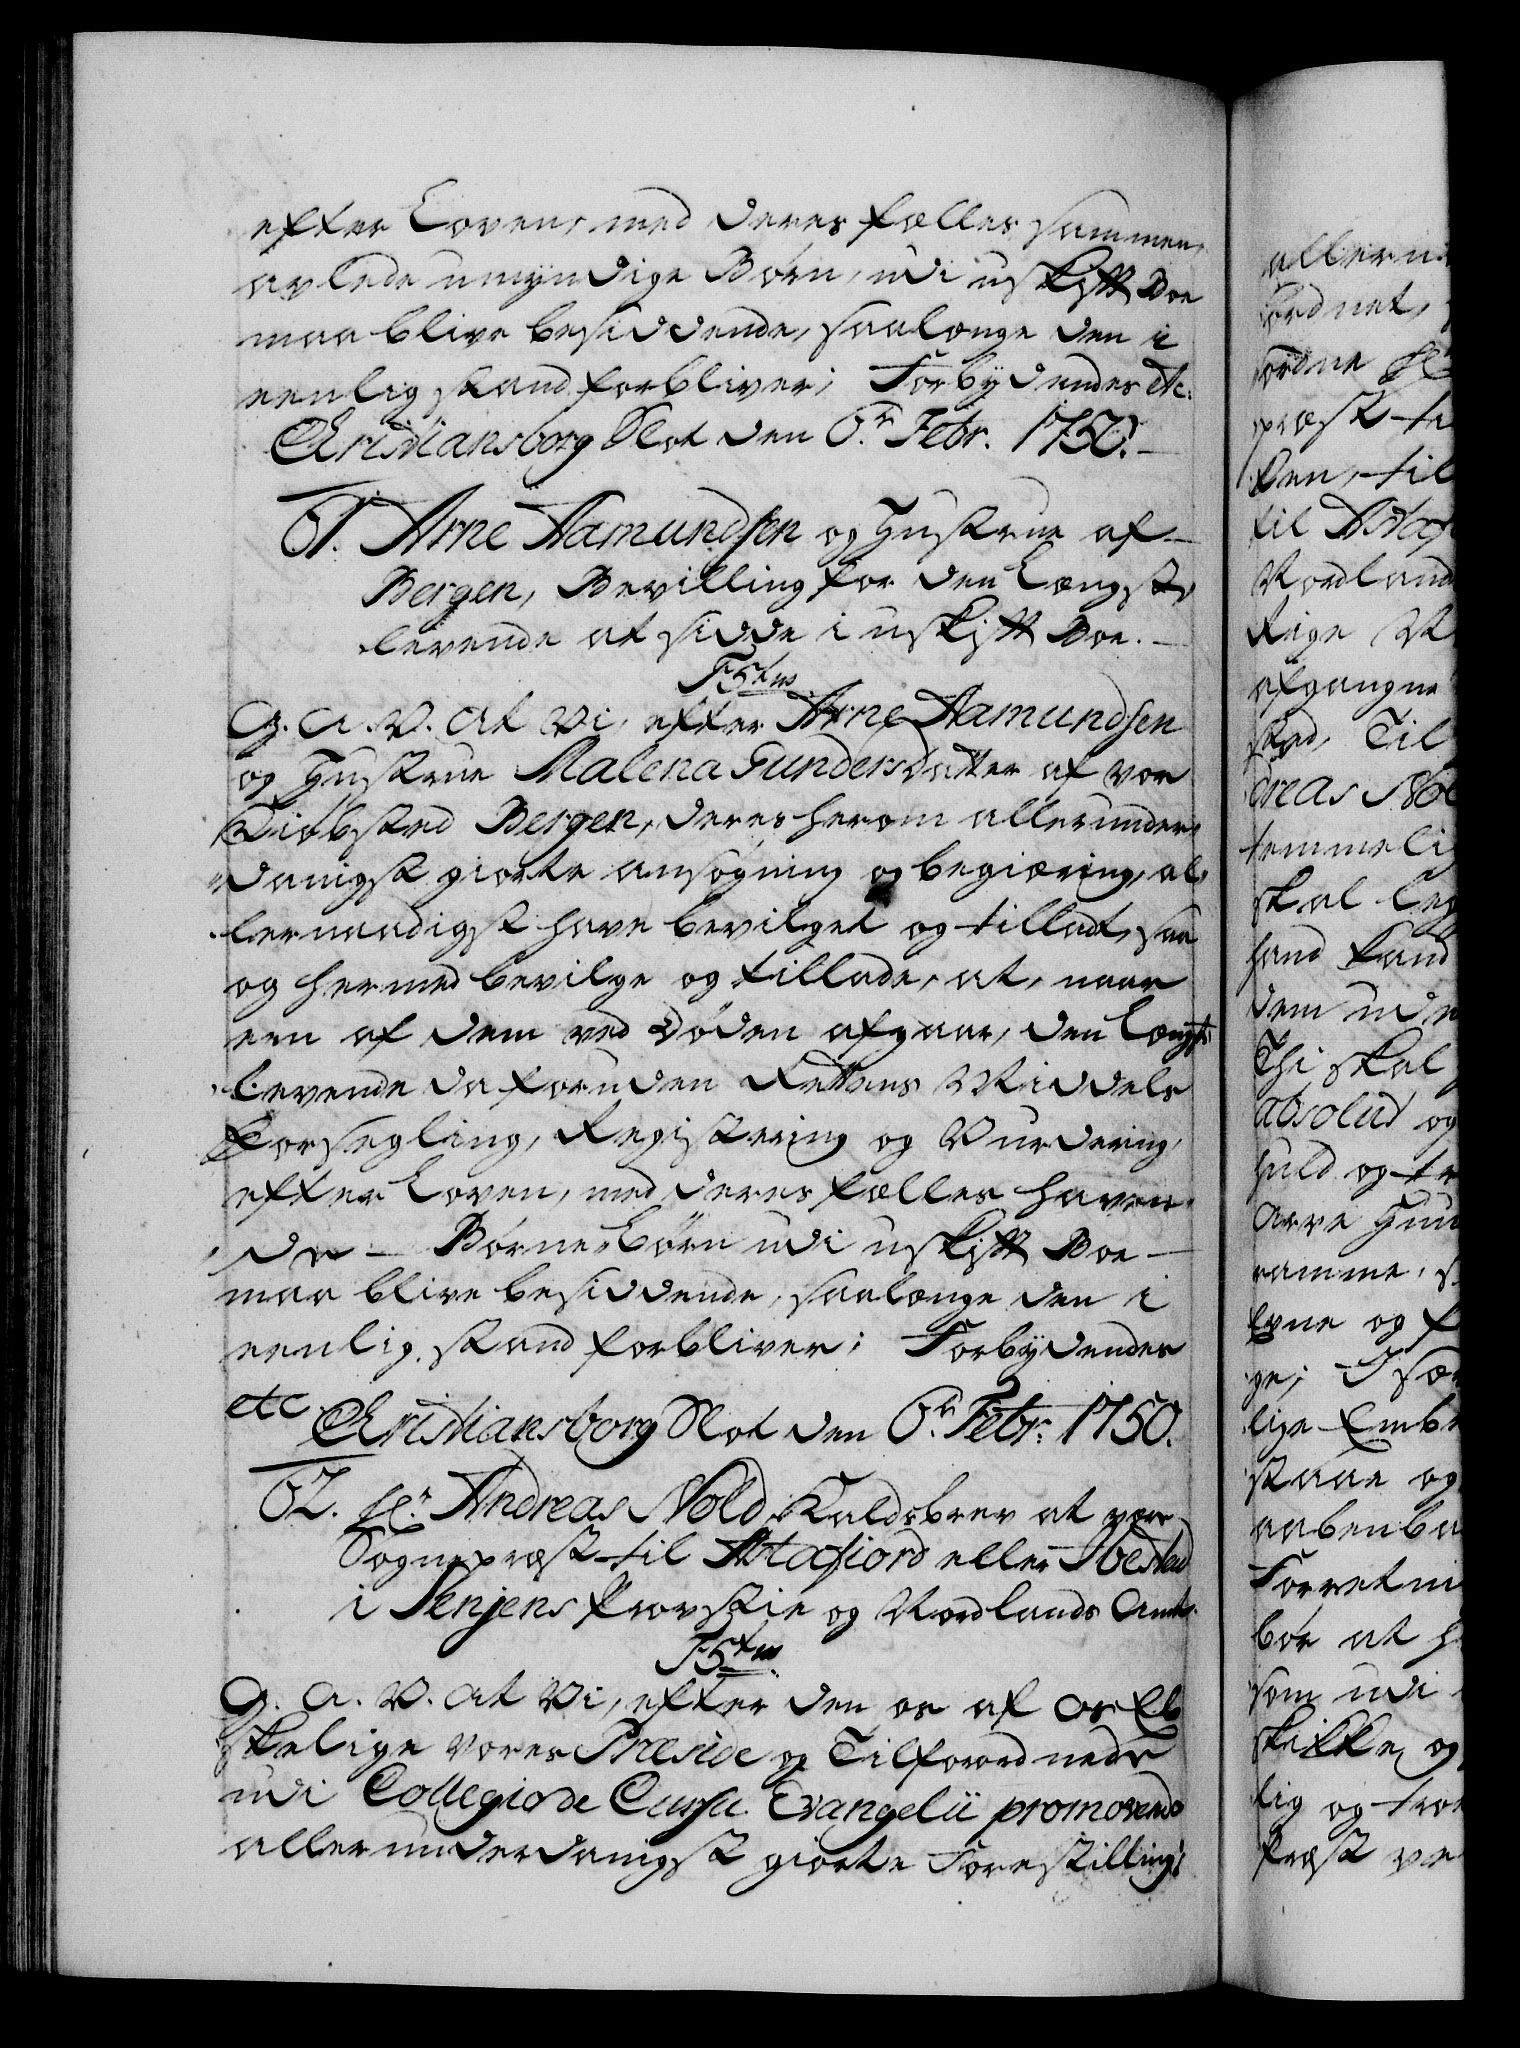 efter Loven, med deres fælles sammen,
avlede umyndige Børn, udi uskift Boe
maa blive besiddende, saalænge den i
eenlig stand forbliver; Forbydendes etc:
Christiansborg Slot den 6.te Febr. 1750.
61. Arne Aamundsen og Hustrue af
Bergen, Bevilling for den Længst,
levende at sidde i uskift Boe.
F5tus
G. A. V. At Vi, efter Arne Aamundsen
og Hustrue Malena Gundersdatter af vor
Kiøbsted Bergen, deres herom allerunder,
danigst giorte ansøgning og begiæring, al,
lernaadigst have bevilget og tilladt, saa
og hermed bevilge og tillade, at, naar
een af dem ved Døden afgaar, den længst
levende da foruden Rettens Middels
Forsegling, Registering og Vurdering,
efter Loven, med deres fælles haven,
de Børne-Børn udi uskift Boe
maa blive besiddende, saalænge den i
eenlig stand forbliver; Forbydendes
etc Christiansborg Slot den 6.te Febr: 1750.
62. Hr. Andreas Nold, Kaldsbrev at være
Sognepræst til Astafiord eller Ibestad
i Senjens Provstie og Nordlands Amt.
F5tus
G. A. V. At Vi, efter den os af os El
skelige vores Præside og Tilforordnede
udi Collegio de Cursu Evangelii promovendo
allerunderdanigst giorte Forestilling;
allern
ordnet,
ordne
præst ti
den, til
til Astaf
Nordland
Rige
afgangne
sted, Til
dreas Nol
temmeli
skal leg
hand kand
dem uden
Thi skal
absolut og
huld og tr
Arve
ramme, s
evne og f
ge; Især
lige Embe
staae og
aabenba
Forretni
bør at h
som udi
skikke og
lig og troe
Præst ve